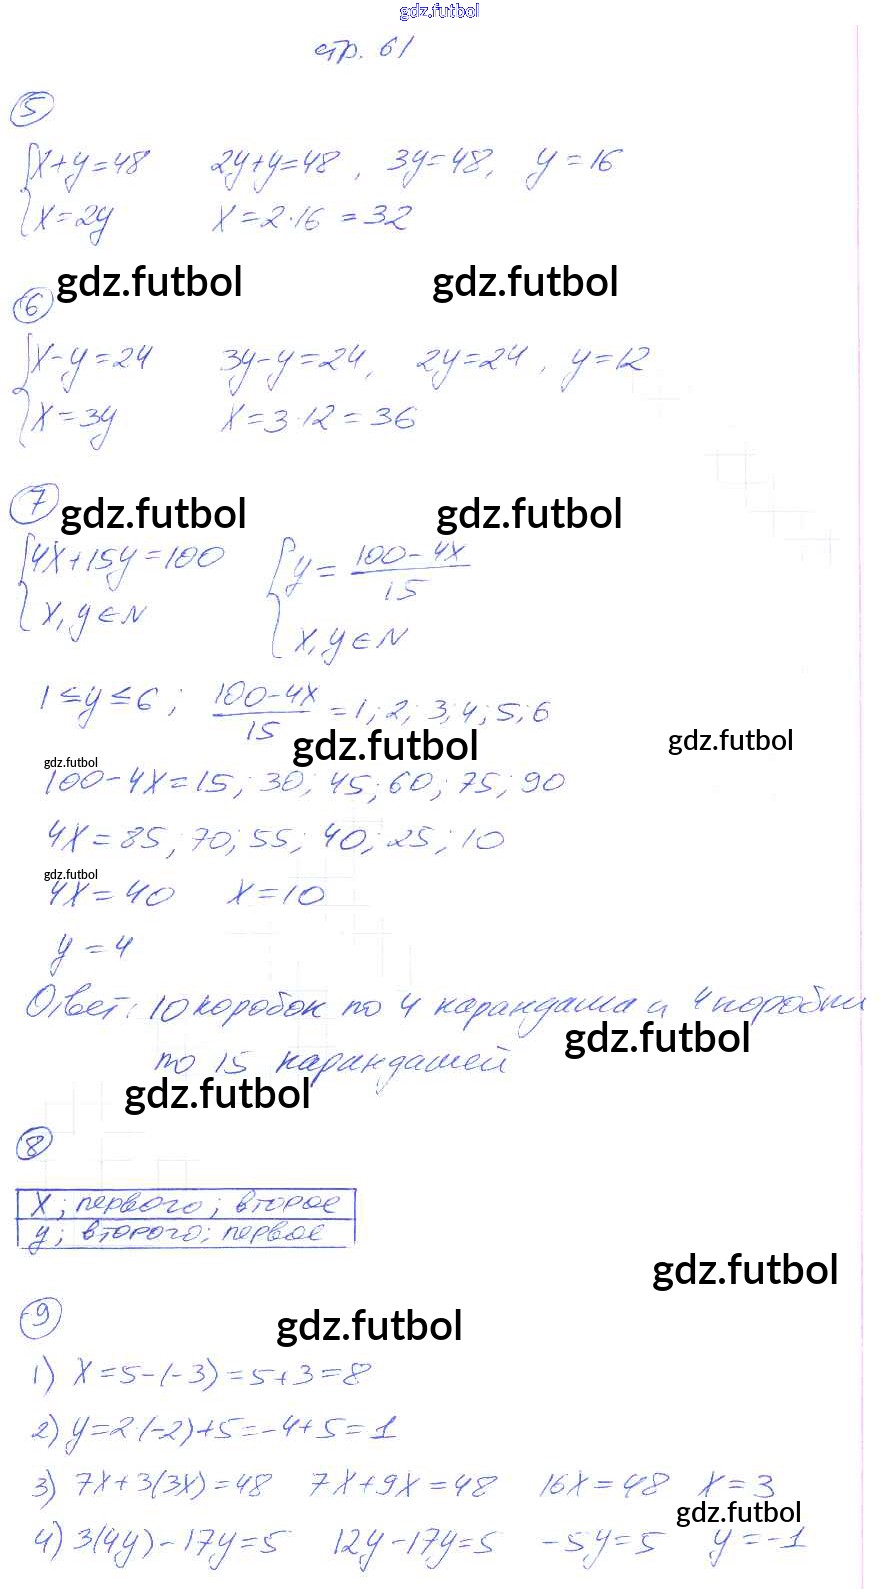 gdz.futbol
стр. 61
5
{x+y=48   2y+y=48, 3y=48, y=16
{x=2y   x=2·16=32
gdz.futbol gdz.futbol
6
{x-y=24   3y-y=24, 2y=24, y=12
{x=3y   x=3·12=36
7
gdz.futbol gdz.futbol
{4x+15y=100   {y=(100-4x)/15
{x,y∈N   {x,y∈N
1≤y≤6; (100-4x)/15=1; 2; 3; 4; 5; 6
gdz.futbol gdz.futbol
gdz.futbol
100-4x=15; 30; 45; 60; 75; 90
4x=85; 70; 55; 40; 25; 10
gdz.futbol
4x=40   x=10
y=4
Ответ: 10 коробок по 4 карандаша и 4 коробки
gdz.futbol
по 15 карандашей
gdz.futbol
8
x; первого; второе
y; второго; первое
gdz.futbol
9
gdz.futbol
1) x=5-(-3)=5+3=8
2) y=2·(-2)+5=-4+5=1
3) 7x+3(3x)=48   7x+9x=48   16x=48   x=3
gdz.futbol
4) 3(4y)-17y=5   12y-17y=5   -5y=5   y=-1